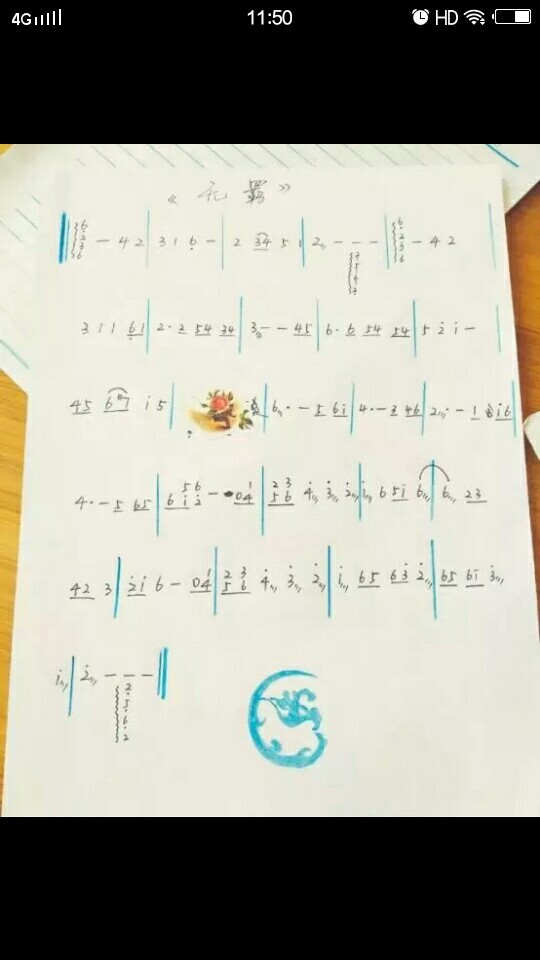 4G 11:50 HD
《无羁》
6 2 3 6 - 4 2 | 3 1 6 - | 2 34 5 1 | 2,, - - - | 6 2 3 6 - 4 2
3 1 1 61 | 2· 2 54 34 | 3,, - - 45 | 6· 6 54 54 | 5 2 i -
45 6 i 5 | 6,, · - 5 6i | 4· - 3 46 | 2,,, · - 1 i6
4· - 5 65 | 6 5i 62 - 04 1 | 25 36 4,,, 3,,, 2,,, | i,,, 6 5i 6,,, | 6,,, 23
42 3 | 2i 6 - 04 1 | 25 36 4,,, 3,,, 2,,, | i,,, 65 63 2,,, | 65 6i 3,,,
i,,, | 2,,, - - -
2 5 6 2